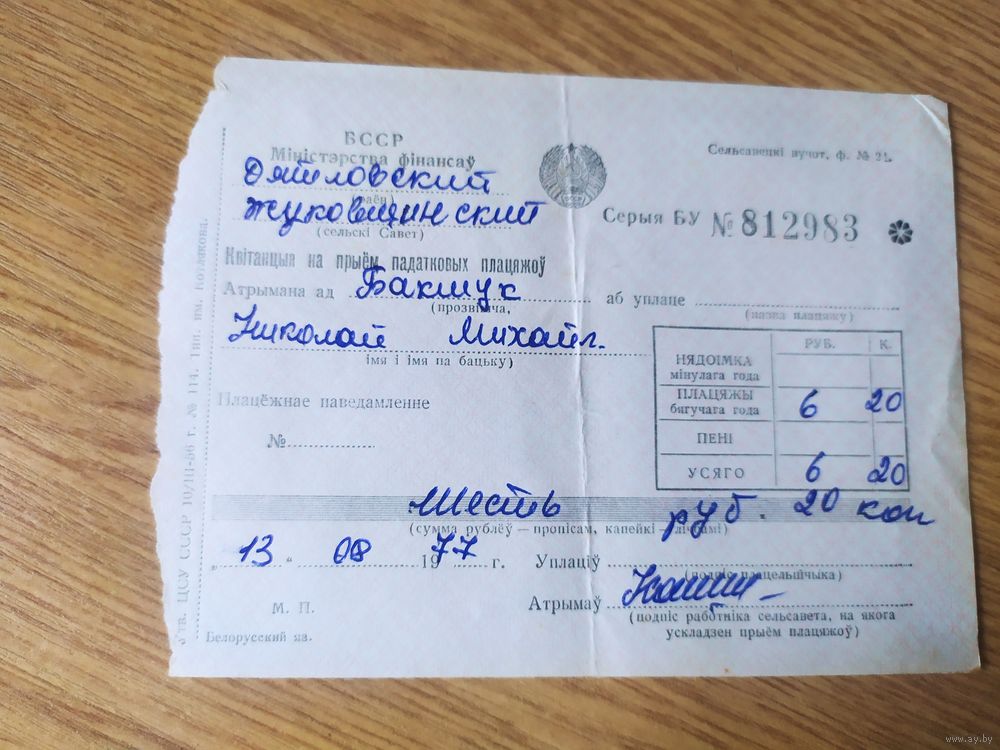 БССР
Міністэрства фінансаў
Сельсавецкі вучот, ф. № 21.
Дятловский
(раён)
Жуковщинский
(сельскі Савет)
Серыя БУ № 812983
Квітанцыя на прыём падатковых плацяжоў
Атрымана ад Бакшук аб уплаце
(прозвішча,
(назва плацяжу)
Николай Михайл.
імя і імя па бацьку)
РУБ. К.
НЯДОІМКА
мінулага года
ПЛАЦЯЖЫ
бягучага года 6 20
Плацёжнае паведамленне
№
ПЕНІ
УСЯГО 6 20
Шесть руб. 20 коп
(сумма рублёў — пропісам, капейкі — лічбамі)
„13“ 08 1977 г. Уплаціў
(подпіс плацельшчыка)
Атрымаў
М. П.
(подпіс работніка сельсавета, на якога
ускладзен прыём плацяжоў)
Белорусский яз.
Утв. ЦСУ СССР 10/III-56 г. № 114. Тип. им. Котлякова.
www.ay.by